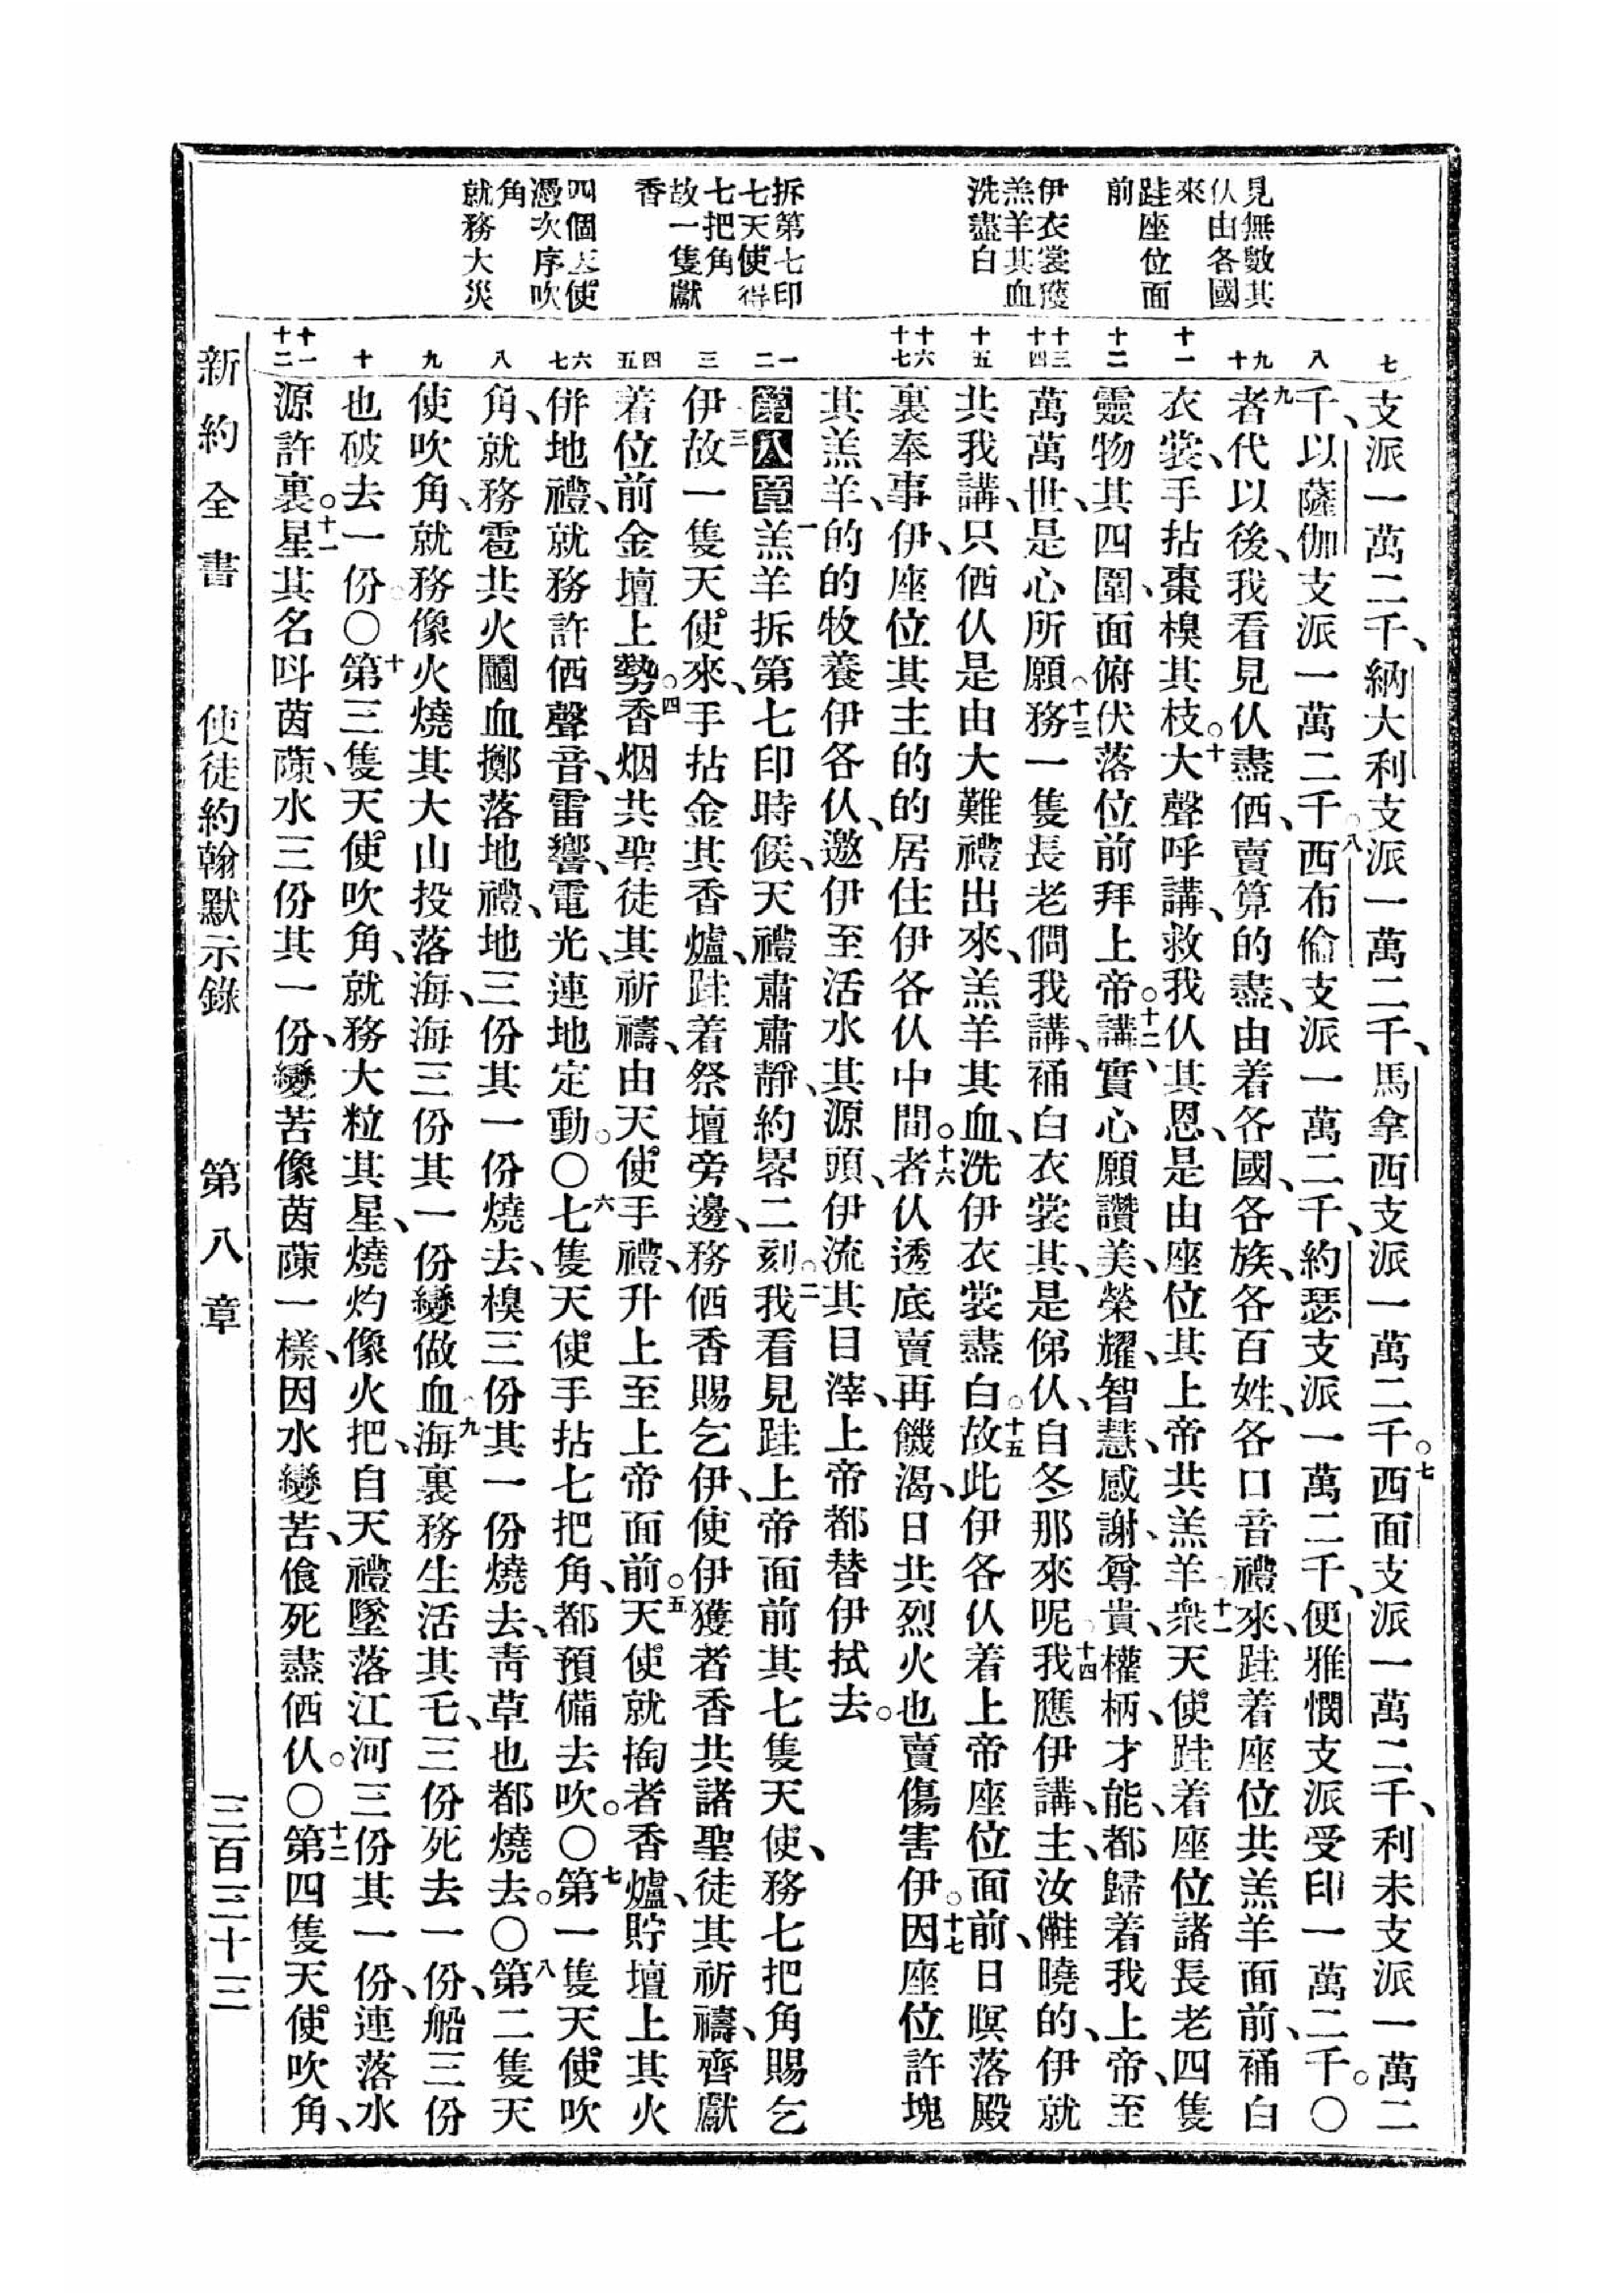 見無數其
仈由各國
來
跬座位面
前
伊衣裳獲
羔羊其血
洗盡白
拆第七印
七天使得
七把角
故一隻獻
香
四個天使
憑次序吹
角
就務大災
七
支派一萬二千、納大利支派一萬二千、馬拿西支派一萬二千。七西面支派一萬二千、利未支派一萬二
八
千、以薩伽支派一萬二千。八西布倫支派一萬二千、約瑟支派一萬二千、便雅憫支派受印一萬二千。〇
九 十
九者代以後、我看見仈盡𠊎、賣算的盡、由着各國、各族、各百姓、各口音禮來、跬着座位共羔羊面前、補白
十一
衣裳、手拈棗槺其枝。十大聲呼講、救我仈其恩、是由座位其上帝共羔羊。十一衆天使跬着座位諸長老四隻
十二
靈物其四圍、面俯伏落位前拜上帝。十二講、實心願讚美、榮耀、智慧、感謝、尊貴、權柄、才能、都歸着我上帝、至
十三 十四
萬萬世、是心所願。十三務一隻長老問我講、補白衣裳其、是俤仈、自冬那來呢。十四我應伊講、主、汝曉的、伊就
十五
共我講、只仈是由大難禮出來、羔羊其血、洗伊衣裳盡白。十五故此伊各仈着上帝座位面前、日暝落殿
十六 十七
裏奉事伊、座位其主的的居住伊各仈中間。十六者仈透底賣再饑渴、日共烈火也賣傷害伊。十七因座位許塊
其羔羊、的的牧養伊各仈、邀伊至活水其源頭、伊流其目滓、上帝都替伊拭去。
一 二
第八章一羔羊拆第七印時候、天禮肅肅靜、約畧二刻。二我看見跬上帝面前其七隻天使、務七把角賜乞
三
伊。三故一隻天使來、手拈金其香爐、跬着祭壇旁邊、務香賜乞伊、使伊獲者香共諸聖徒其祈禱、齊獻
四 五
着位前金壇上勢。四香烟共聖徒其祈禱、由天使手禮、升上至上帝面前。五天使就掏者香爐、貯壇上其火
六 七
併地禮、就務許聲音、雷響、電光、連地定動。〇六七隻天使手拈七把角、都預備去吹。〇七第一隻天使吹
八
角、就務雹共火𨷖血擲落地禮、地三份其一份燒去、槺三份其一份燒去、靑草也都燒去。〇八第二隻天
九
使吹角、就務像火燒其大山投落海、海三份其一份變做血。九海裏務生活其乇、三份死去一份、船三份
十
也破去一份。〇十第三隻天使吹角、就務大粒其星、燒灼像火把、自天禮墜落江河三份其一份、連落水
十一 十二
源許裏。十一星其名呌茵蔯、水三份其一份、變苦像茵蔯一樣、因水變苦、飡死盡仈。〇十二第四隻天使吹角、
新約全書 使徒約翰默示錄 第八章 三百三十三